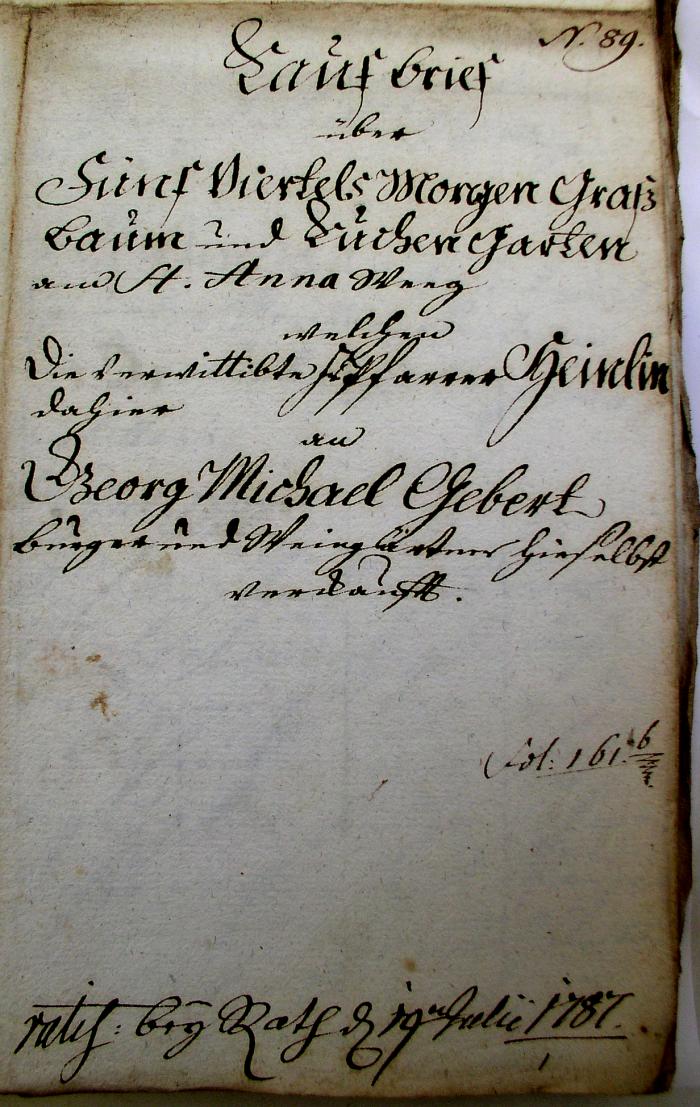 N. 89.
Kauf brief
über
Fünf Viertels Morgen Graß
baum und Kuchen Garten
am St. Anna Weeg
welchen
Die verwittibte Pfarrer Heinlin
dahier
an
Georg Michael Gebert
burger und Weingärtner hieselbst
verkaufft.
Fol: 161.b
ratif: beÿ Rath d 19ten Julii 1787.